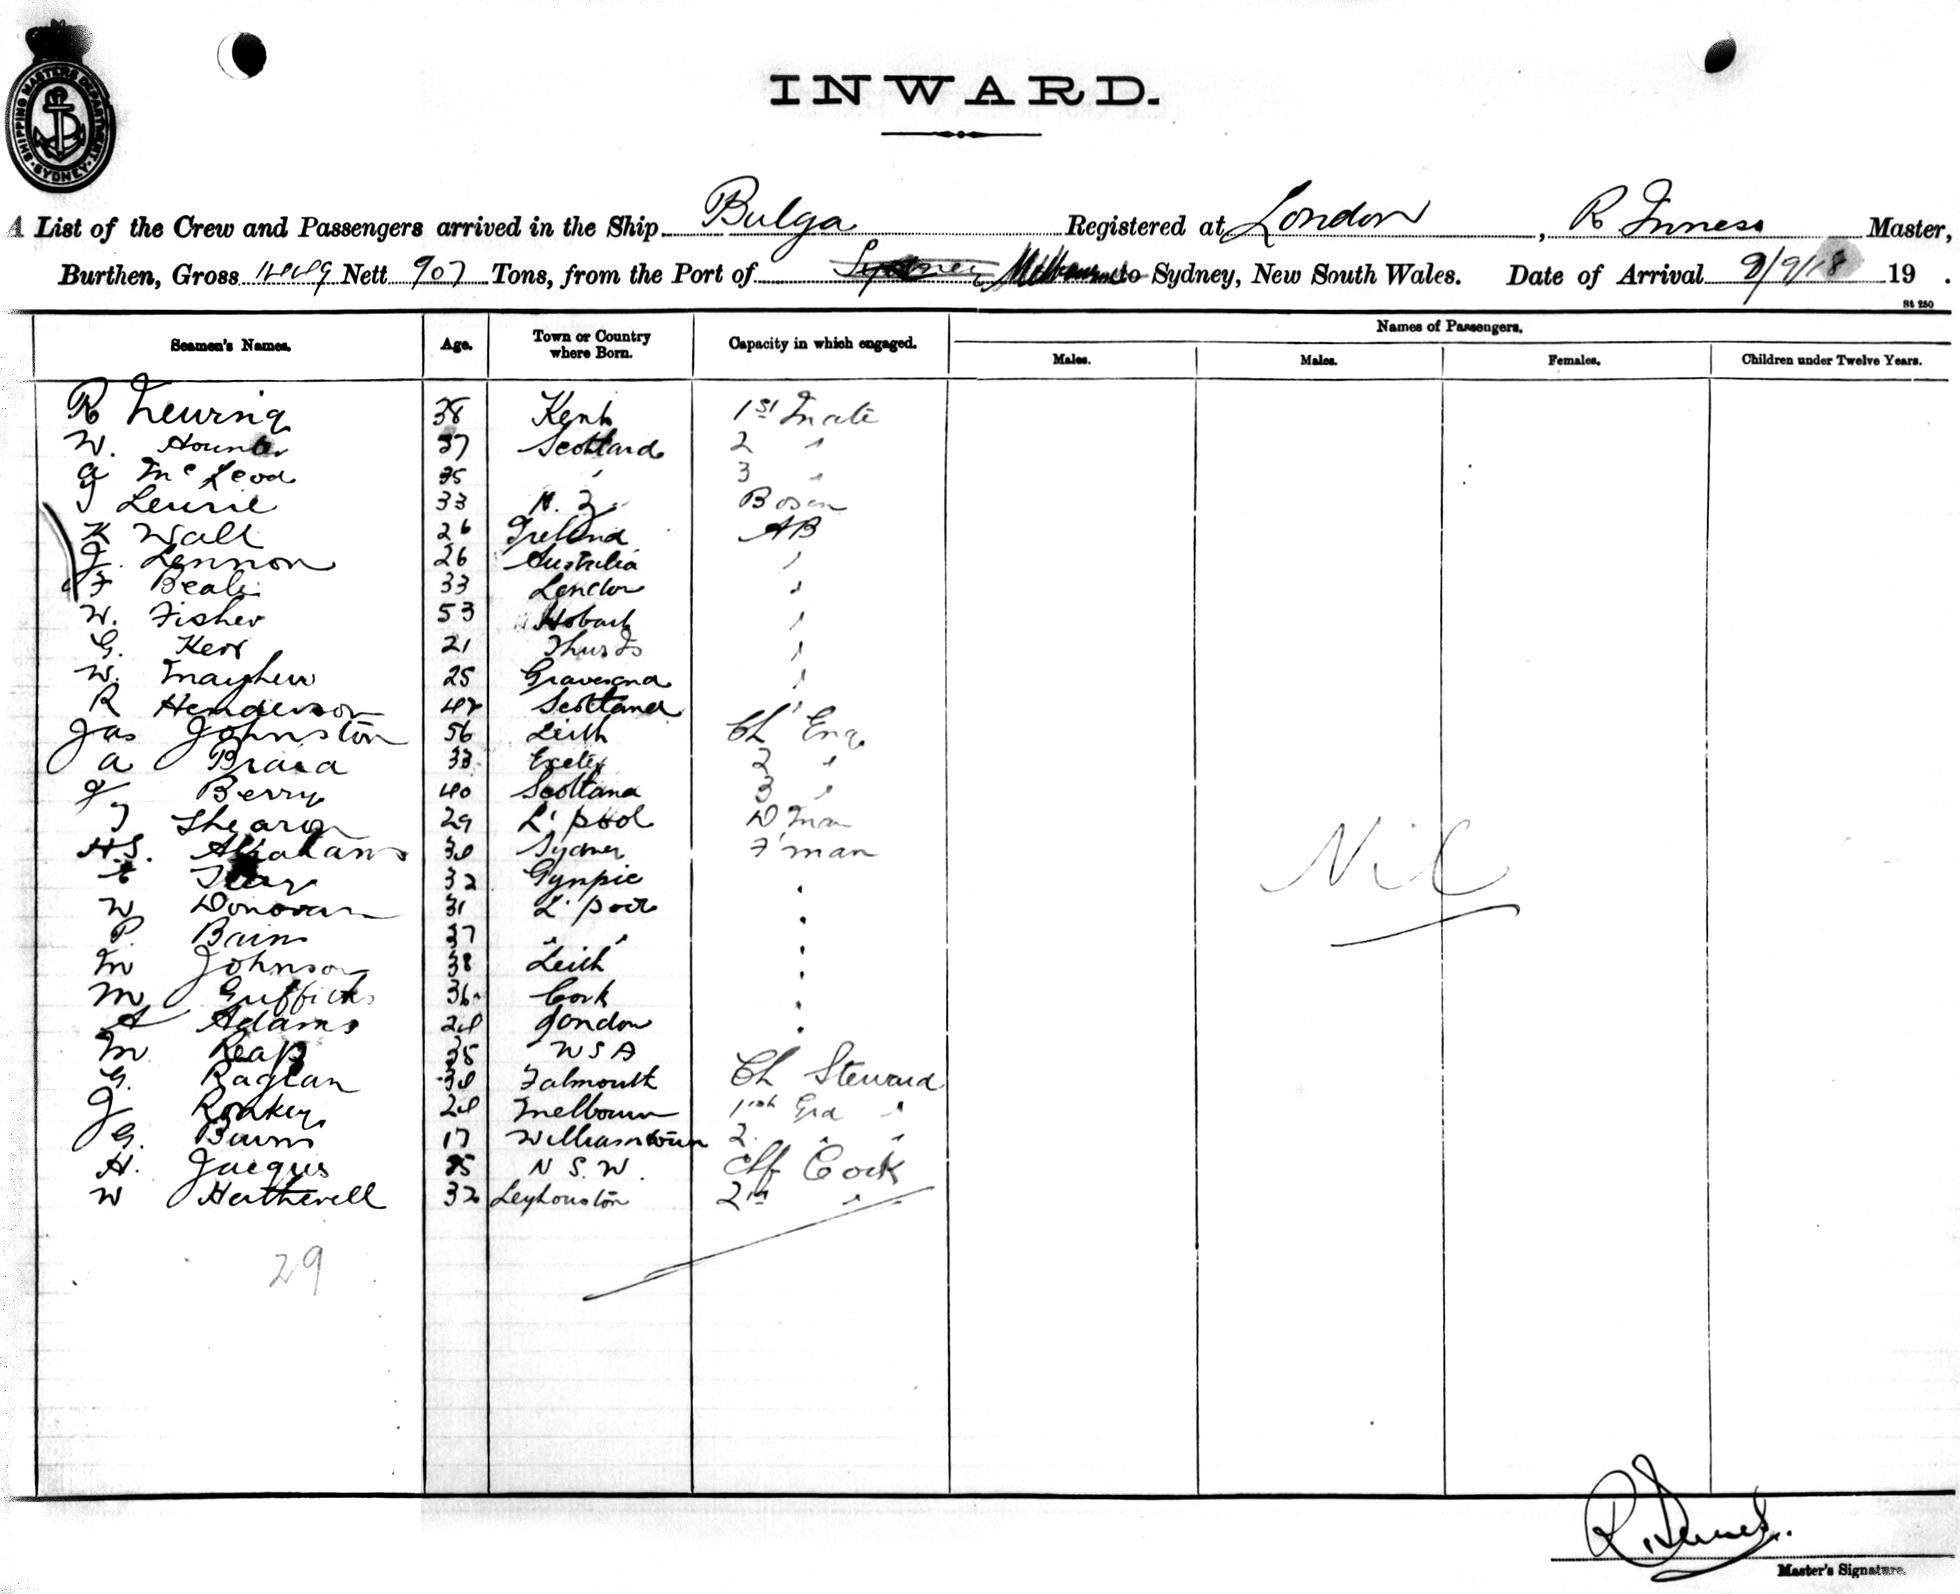 SHIPPING MASTERS DEPARTMENT SYDNEY
INWARD.
A List of the Crew and Passengers arrived in the Ship Bulga Registered at London, R Inness Master,
Burthen, Gross 1449 Nett 907 Tons, from the Port of Sydney Melbourne to Sydney, New South Wales. Date of Arrival 9/9/18 19 .
St 250
Seamen's Names. Age. Town or Country where Born. Capacity in which engaged. Names of Passengers.
Males. Males. Females. Children under Twelve Years.
R 38 Kent 1st Mate
W. Hounter 37 Scotland 2 "
A McLeod 35 " 3 "
Leurie 33 N.Z. Bosen
K Wall 26 Ireland AB
J. Lennon 26 Australia "
F Beale 33 London "
W. Fisher 53 Hobart "
G. Kerr 21 Thurs Is "
W. Mayhew 25 Gravesend "
R Henderson 42 Scotland "
Jas Johnston 56 Leith Ch Eng.
A 33 Exeter 2 "
Berry 40 Scotland 3 "
29 L'pool D'man
H.S. Abrahams 34 Sydney F'man
32 Gympie "
W Donovan 31 L'pool "
P. Bains 37 " " "
M Johnson 38 Leith "
M Griffiths 36 Cork "
A Adams 24 London "
M Reap 35 USA
G. Raglan 34 Falmouth Ch Steward
J 24 Melbourn Gra "
G. Burns 17 Williamtown 2 " "
H. Jacques 25 N.S.W. Cook
W Hartherell 32 Leyhouston 2nd "
Nil
29
R. Inness.
Master's Signature.